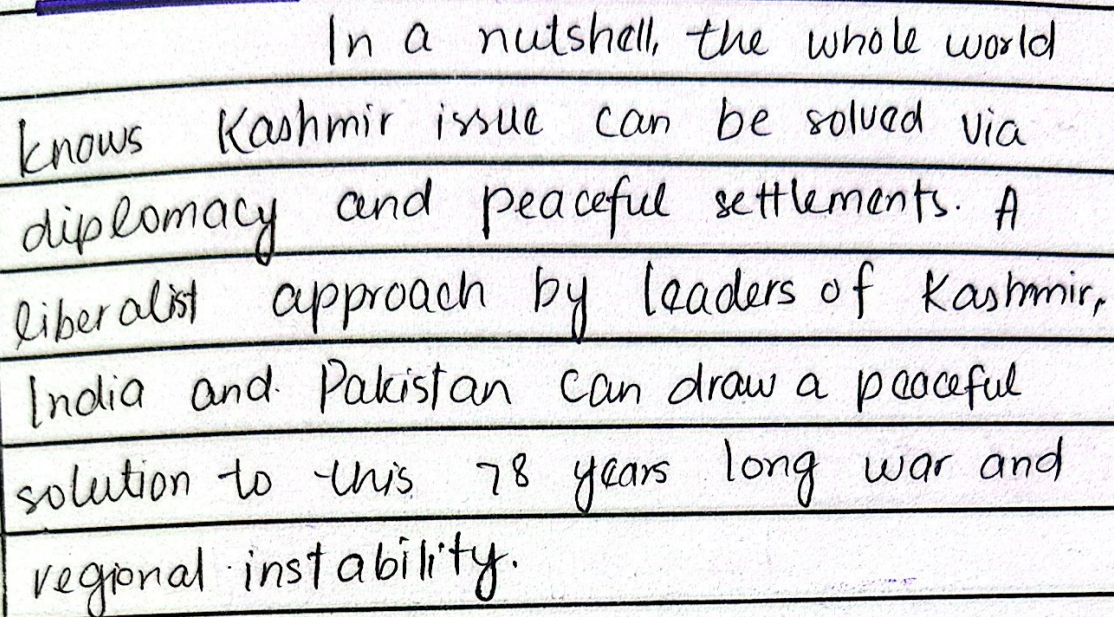 In a nutshell, the whole world
knows Kashmir issue can be solved via
diplomacy and peaceful settlements. A
liberalist approach by leaders of Kashmir,
India and Pakistan can draw a peaceful
solution to this 78 years long war and
regional instability.